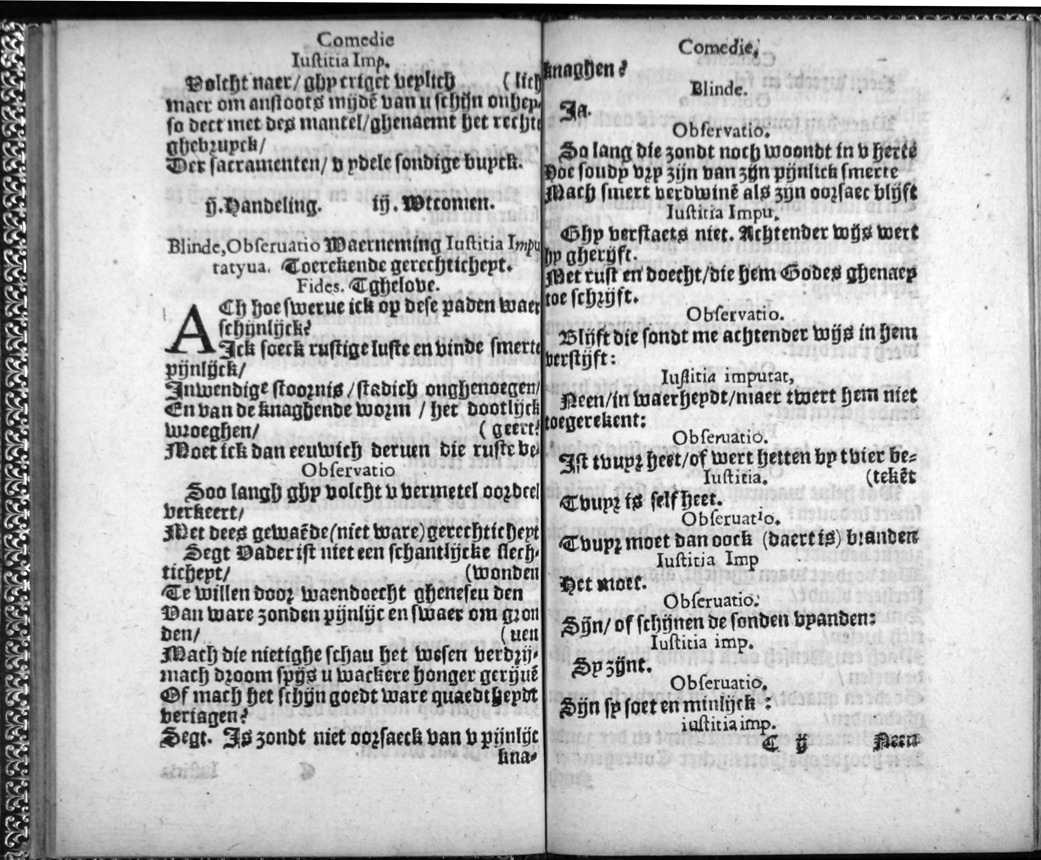 Comedie
Iustitia Imp.
Volcht naer/ ghy criget veylich (lich
maer om anstoots mijdē van u schijn onhey-
so dect met des mantel/ghenaemt het rechte
ghebruyck/
Der sacramenten/ v ydele sondige buyck.
ij. Handeling. iij. Wtcomen.
Blinde, Obseruatio Waerneming Iustitia Impu
tatyua. Toerckende gerechticheyt.
Fides. Tghelove.
ACh hoe swerue ick op dese paden waer
schijnlijck?
Ick soeck rustige luste en vinde smerte
pijnlijck/
Inwendige stoornis/stadich onghenoegen/
En van de knaghende worm / het dootlijck
wroeghen/ (geert?
Moet ick dan eeuwich deruen die ruste be-
Observatio
Soo langh ghy volcht v vermetel oordeel
verkeert/
Met dees gewaēde(niet ware)gerechticheyt
Segt Vader ist niet een schantlijcke slech-
ticheyt/ (wonden
Te willen door waendoecht ghenesen den
Van ware zonden pijnlijc en swaer om gron
den/ (uen
Mach die nietighe schau het wesen verdrij-
mach droom spijs u wackere honger gerijuē
Of mach het schijn goedt ware quaedtheydt
veriagen?
Segt. Is zondt niet oorsaeck van v pijnlijc
kna-
Comedie,
knaghen?
Blinde.
Ja.
Observatio.
So lang die zondt noch woondt in v herte
Hoe soudy vry zijn van zijn pijnlick smerte
Mach smert verdwinē als zijn oorsaec blijft
Iustitia Impu,
Ghy verstaets niet. Achtender wijs wert
hy gherijft.
Met rust en doecht/die hem Godes ghenaey
toe schrijft.
Observatio.
Blijft die sondt me achtender wijs in hem
verstijft:
Iustitia imputat,
Neen/in waerheydt/maer twert hem niet
toegerekent:
Obseruatio.
Ist tvuyr heet/of wert hetten by tvier be-
Iustitia. (tekēt
Tvuyr is self heet.
Obseruatio.
Tvuyr moet dan oock (daert is) branden
Iustitia Imp
Het moet.
Obseruatio.
Sijn/ of schijnen de sonden vyanden:
Iustitia imp.
Sy zijnt.
Obseruatio,
Sijn sy soet en minlijck :
iustitia imp.
C ij Neen